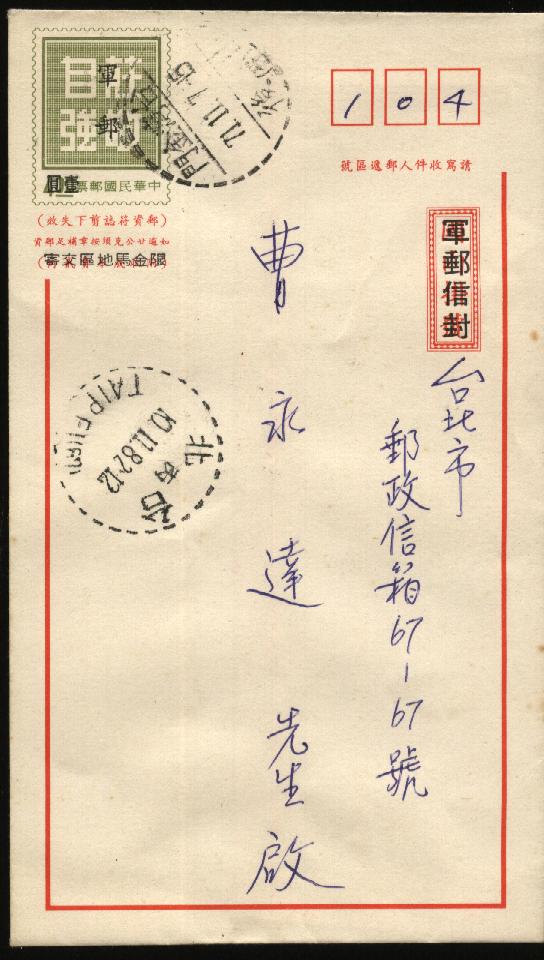 104
請寫收件人郵遞區號
軍郵信封
台北市
郵政信箱67-67號
曹永達先生啟
自強
軍郵
中華民國郵票
壹圓
(郵資符誌剪下失效)
如逾廿公克須按章補足郵資
限金馬地區交寄
71.11.7.15
TAIPEI
10.11.82.12
台北